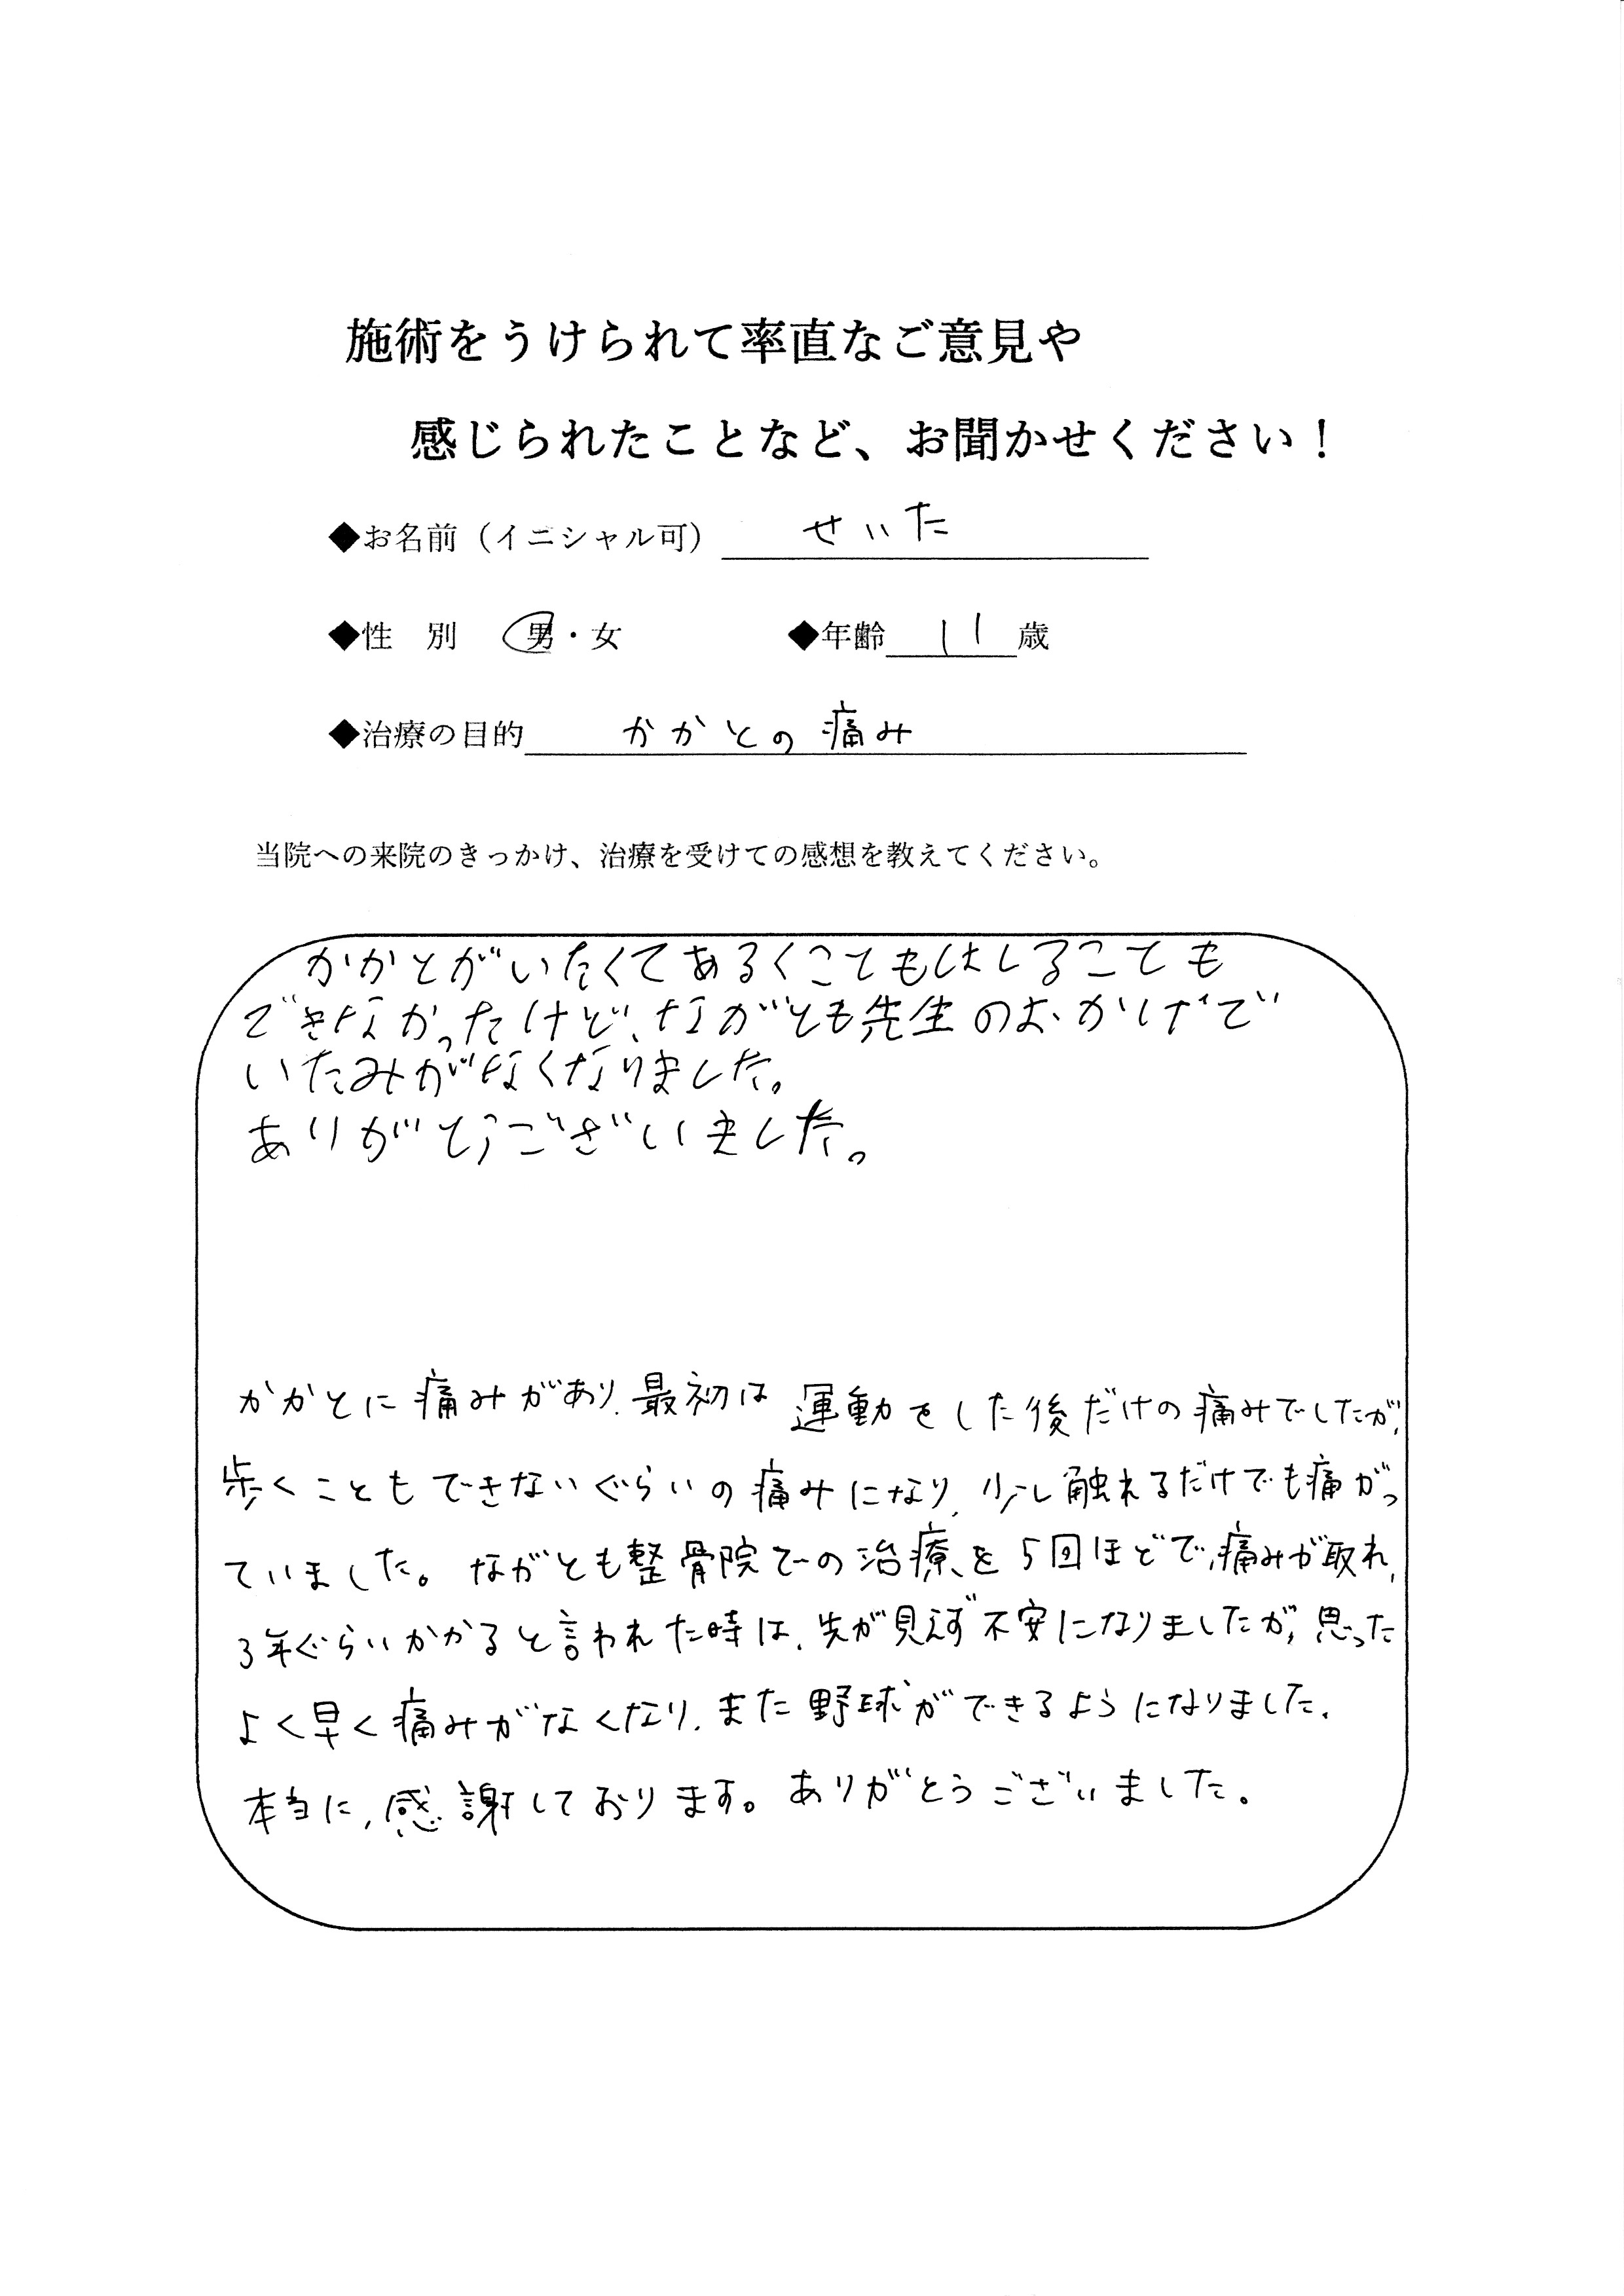 施術をうけられて率直なご意見や
感じられたことなど、お聞かせください！
◆お名前（イニシャル可） せいた
◆性　別　男・女　◆年齢 11 歳
◆治療の目的 かかとの痛み
当院への来院のきっかけ、治療を受けての感想を教えてください。
かかとがいたくてあるくこてもはしるこても
できなかったけど、ながとも先生のおかげで
いたみがなくなりました。
ありがとうございました。
かかとに痛みがあり、最初は運動をした後だけの痛みでしたが、
歩くこともできないぐらいの痛みになり、少し触れるだけでも痛がっ
ていました。ながとも整骨院での治療を5回ほどで、痛みが取れ、
3年ぐらいかかると言われた時は、先が見えず不安になりましたが、思った
よく早く痛みがなくなり、また野球ができるようになりました。
本当に、感謝しております。ありがとうございました。